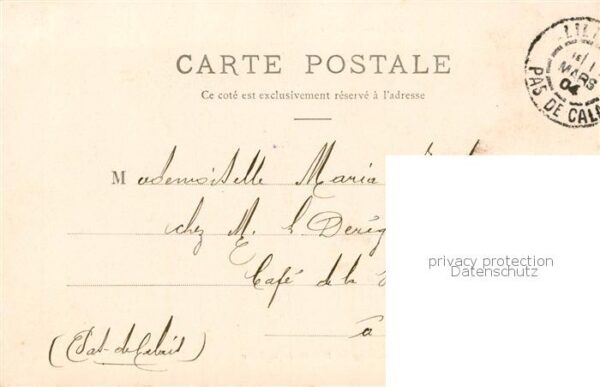 CARTE POSTALE
Ce coté est exclusivement réservé à l'adresse
LILL
MARS
04
PAS DE CALA
Mademoiselle Maria
chez M. Dereg
Café de la
à
(Pas-de-Calais)
privacy protection
Datenschutz